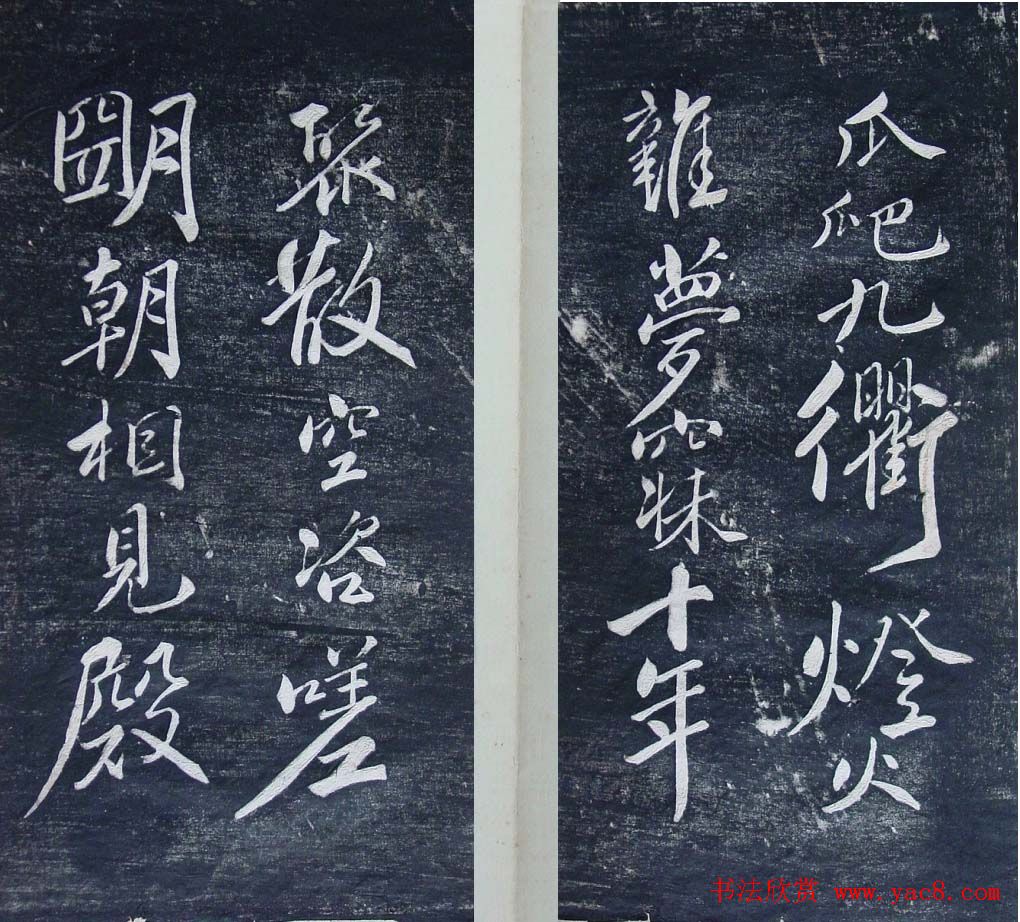 爪爬九衢燈火
雜夢寐十年
聚散空咨嗟
朙朝相見殿
书法欣赏 www.yac8.com